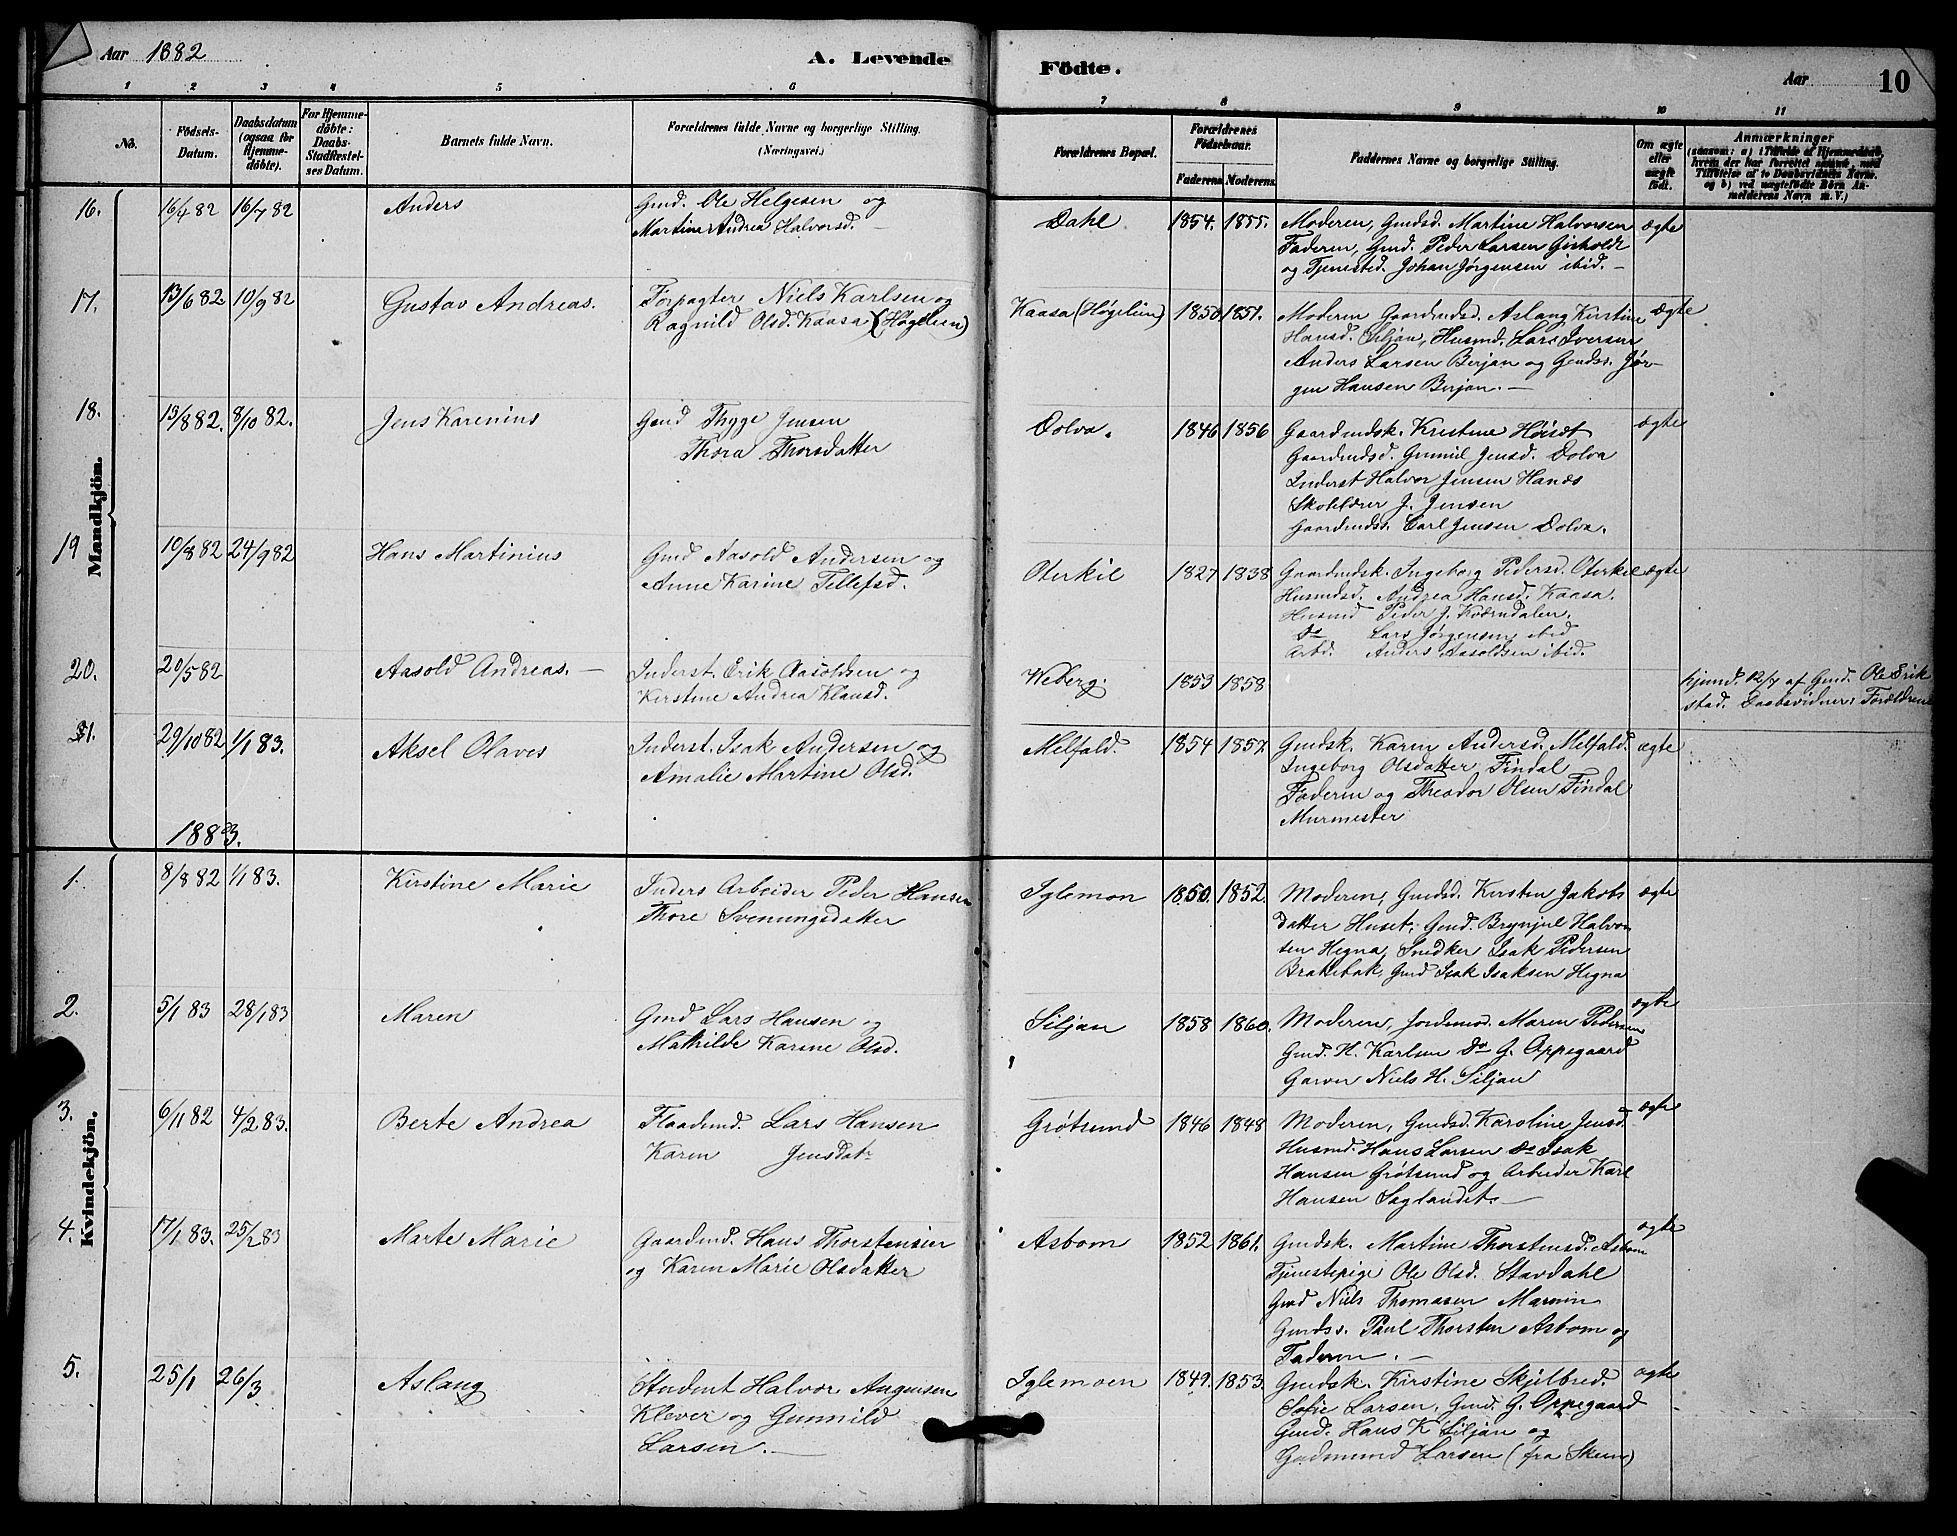 Aar 1882 A. Levende Födte. Aar 10
1 2 3 4 5 6 7 8 9 10 11
No. Födsels-Datum. Daabsdatum (ogsaa for Hjemmedöbte). For Hjemmedöbte: Daabs-Stadfæstelses Datum. Barnets fulde Navn. Forældrenes fulde Navne og borgerlige Stilling. (Næringsvei.) Forældrenes Bopæl. Forældrenes Födselsaar. Faderens. Moderens. Faddernes Navne og borgerlige Stilling. Om ægte eller uægte födt. Anmærkninger (saasom: a) i Tilfælde af Hjemmedaab, hvem der har forrettet samme, med Tilföielse af to Daabsvidners Navne, og b) ved uægtefödte Börn Anmelderens Navn m.V.)
Mandkjön.
16. 16/4 82 16/7 82 Anders Gmd. Ole Helgesen og Dahl 1854. 1855. Moderen, Gmdsd. Martine Halvorsen ægte
Martine Andrea Halvorsd. Faderen, Gmd. Peder Larsen Gisholdt
og Tjenested. Johan Jørgensen ibid. —
17. 13/6 82 10/9 82 Gustav Andreas. Forpagter Niels Karlsen og Kaasa (Høgelien) 1850 1851. Moderen Gaardmdsd. Aslaug Kirstine ægte
Ragnild Olsd. Kaasa (Høgelien) Hansd. Siljan, Husmd. Lars Iversen
Anders Larsen Berjan og Gmdss. Jør-
gen Hansen Berjan. —
18. 13/8 82. 8/10 82. Jens Karenius Gmd Thyge Jensen Dolva. 1846 1856 Gaardmdsk. Kristine Høisæt ægte
Thora Thorsdatter Gaardmdsd. Gunnil Jensd. Dolva
Inderst Halvor Jensen Hanæs
Skolelærer J. Jensen
Gaardmdss. Carl Jensen Dolva.
19 10/8 82 24/9 82 Hans Martinius Gmd Aasold Andersen og Oterkil 1827 1838 Gaardmdsk. Ingeborg Pedersd. Oterkil ægte
Anne Karine Tellefsd. Husmdsd. Andrea Hansd. Kaasa.
Husmd Peder J. Kværndalen.
Do Lars Jørgensen ibid
Arbd. Anders Aasoldsen ibid.
20. 20/5 82 Aasold Andreas. — Inderst. Erik Aasoldsen og Weberg. 1853 1858 hjemd. 12/7 af Gmd. Ole Erik
Kirstine Andrea Klausd. stad. Daabsvidner: Forældrene
21. 29/10 82 1/1 83. Aksel Olaves Inderst. Isak Andersen og Melfald. 1854 1857. Gmdsk. Karen Andersd. Melfald. ægte
Amalie Martine Olsd. Ingeborg Olsdatter Findal
Faderen og Theodor Olsen Findal
Murmester
1883.
Kvindekjön.
1. 8/8 82 1/1 83. Kirstine Marie Inders Arbeider Peder Hansen Iglemon 1850. 1852. Moderen, Gmdsd. Kirsten Jakobs ægte
Thore Sveningsdatter datter Huset, Gmd. Brynjul Halvor
sen Hegna, Snedker Isak Pedersen
Brakebak, Gmd Isak Isaksen Hegna
2. 5/1 83 28/1 83 Maren Gmd Lars Hansen og Siljan 1858 1860. Moderen, Jordemod. Maren Pedersen ægte
Mathilde Karine Olsd. Gmd. H. Karlsen Do G. Oppegaard
Garver Niels H. Siljan
3. 6/11 82 4/2 83. Berte Andrea Flaadmd. Lars Hansen Grøtsund 1846 1848 Moderen, Gmdsd. Karoline Jensd. ægte
Karen Jensdatr Husmd. Hans Larsen Do Isak
Hansen Grøtsund og Arbeider Karl
Hansen Saglandet. —
4. 17/1 83. 25/2 83 Marte Marie Gaardmd. Hans Thorstensen Asbom 1852 1861. Gmdsk. Martine Thorstensd. Asbom ægte
og Karen Marie Olsdatter Tjenestepige Ole Olsd. Stavdahl
Gmd Niels Thomasen
Gmdss. Paul Thorsten Asbom og
Faderen. —
5. 25/1 26/3 Aslaug Student Halvor Augensen Iglemoen 1849. 1853. Gmdsk. Kirstine Skjelbred. ægte
Klever og Gunnild Sofie Larsen, Gmd. G. Oppegaard
Larsen. — Gmd. Hans K Siljan og
Gudmund Larsen (fra Skien)